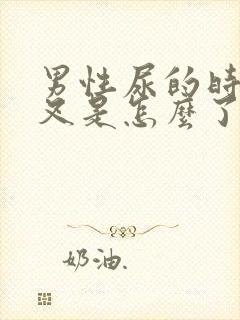 男性尿的時
又是怎麼了
奶油.